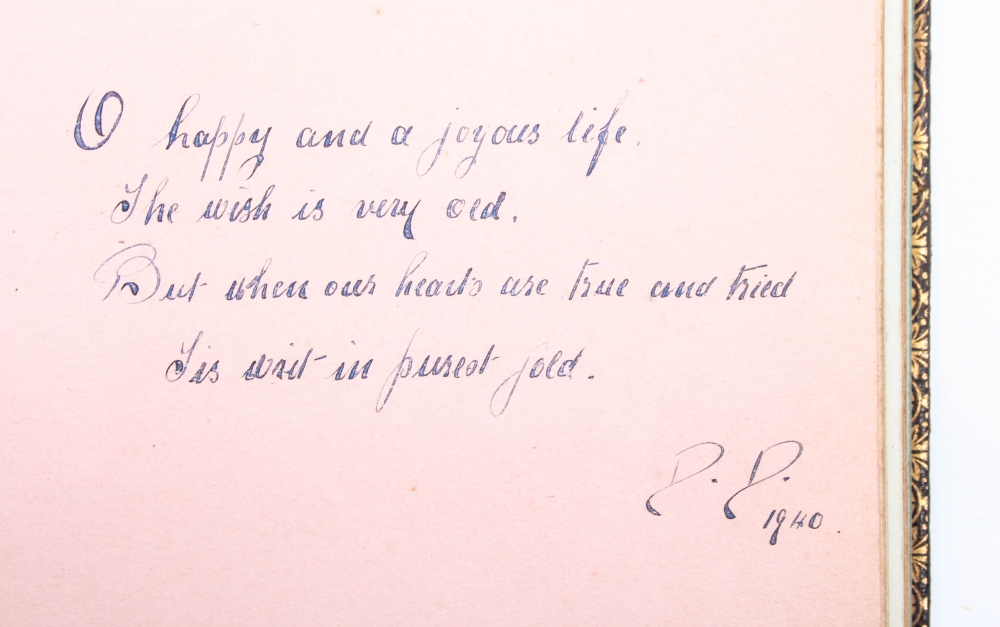 O happy and a joyous life.
The wish is very old.
But when our hearts are true and tried
Tis writ in purest gold.
D. D.
1940.